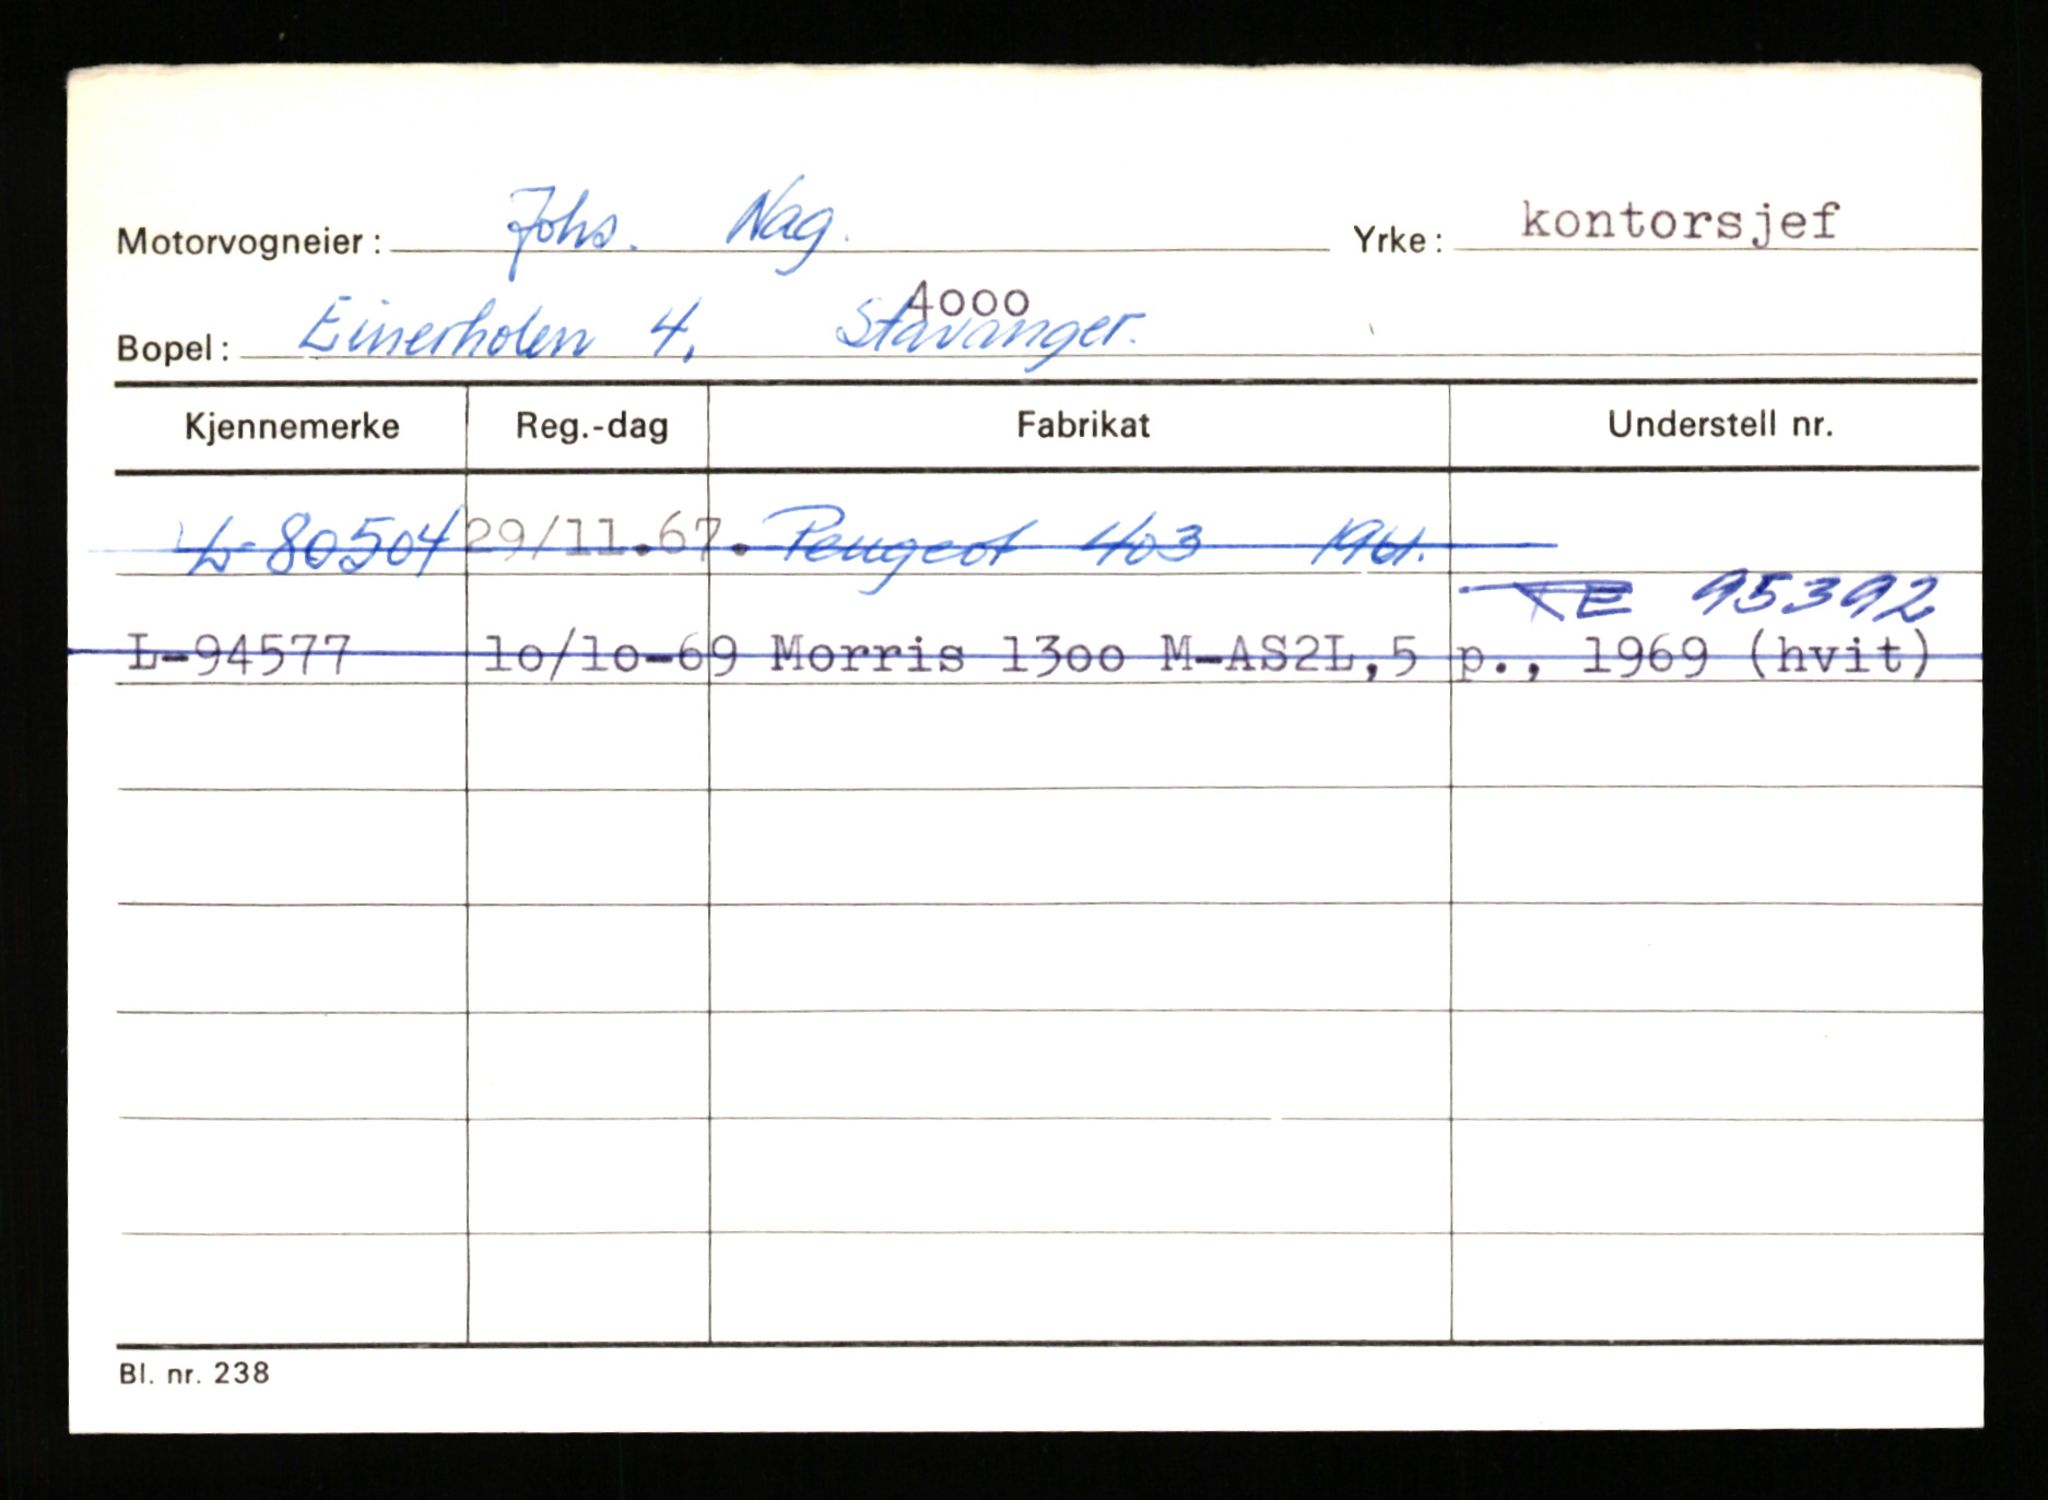 Motorvogneier: Johs. Nag. Yrke: kontorsjef
4000
Bopel: Einerholen 4, Stavanger.
Kjennemerke Reg.-dag Fabrikat Understell nr.
L-80504 29/11.67. Peugeot 403 1961.
TE 95392
L-94577 lo/lo-69 Morris 13oo M-AS2L,5 p., 1969 (hvit)
Bl. nr. 238